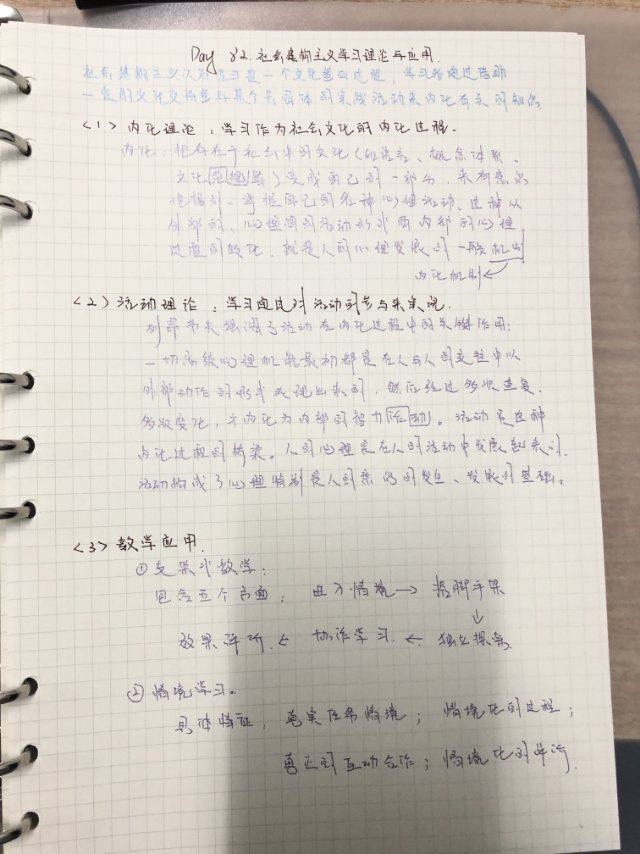 Day 82. 社会建构主义学习理论与应用.
社会建构主义认为学习是一个文化参与过程, 学习者通过借助
一定的文化支持参与某个共同体的实践活动来内化有关的知识
<1> 内化理论：学习作为社会文化的内化过程.
内化：把存在于社会中的文化（如语言、概念体系、
文化规范等）变成自己的一部分, 来有意识
地指引、掌握自己的各种心理活动. 这种从
外部的、心理间的活动形式向内部的心理
过程的转化, 就是人的心理发展的一般机制
内化机制
<2> 活动理论：学习通过对活动的参与来实现.
列昂节夫强调了活动在内化过程中的关键作用:
一切高级心理机能最初都是在人与人的交往中以
外部动作的形式表现出来的, 然后经过多次重复、
多次变化, 才内化为内部的智力活动。活动是这种
内化过程的桥梁。人的心理是在人的活动中发展起来的.
活动构成了心理特别是人的意识的发生、发展的基础。
<3> 教学应用.
① 支架式教学：
包含五个方面：进入情境 → 搭脚手架
↓
效果评价 ← 协作学习 ← 独立探索
② 情境学习。
具体特征, 真实任务情境； 情境化的过程；
真正的互动合作；情境化的评价.